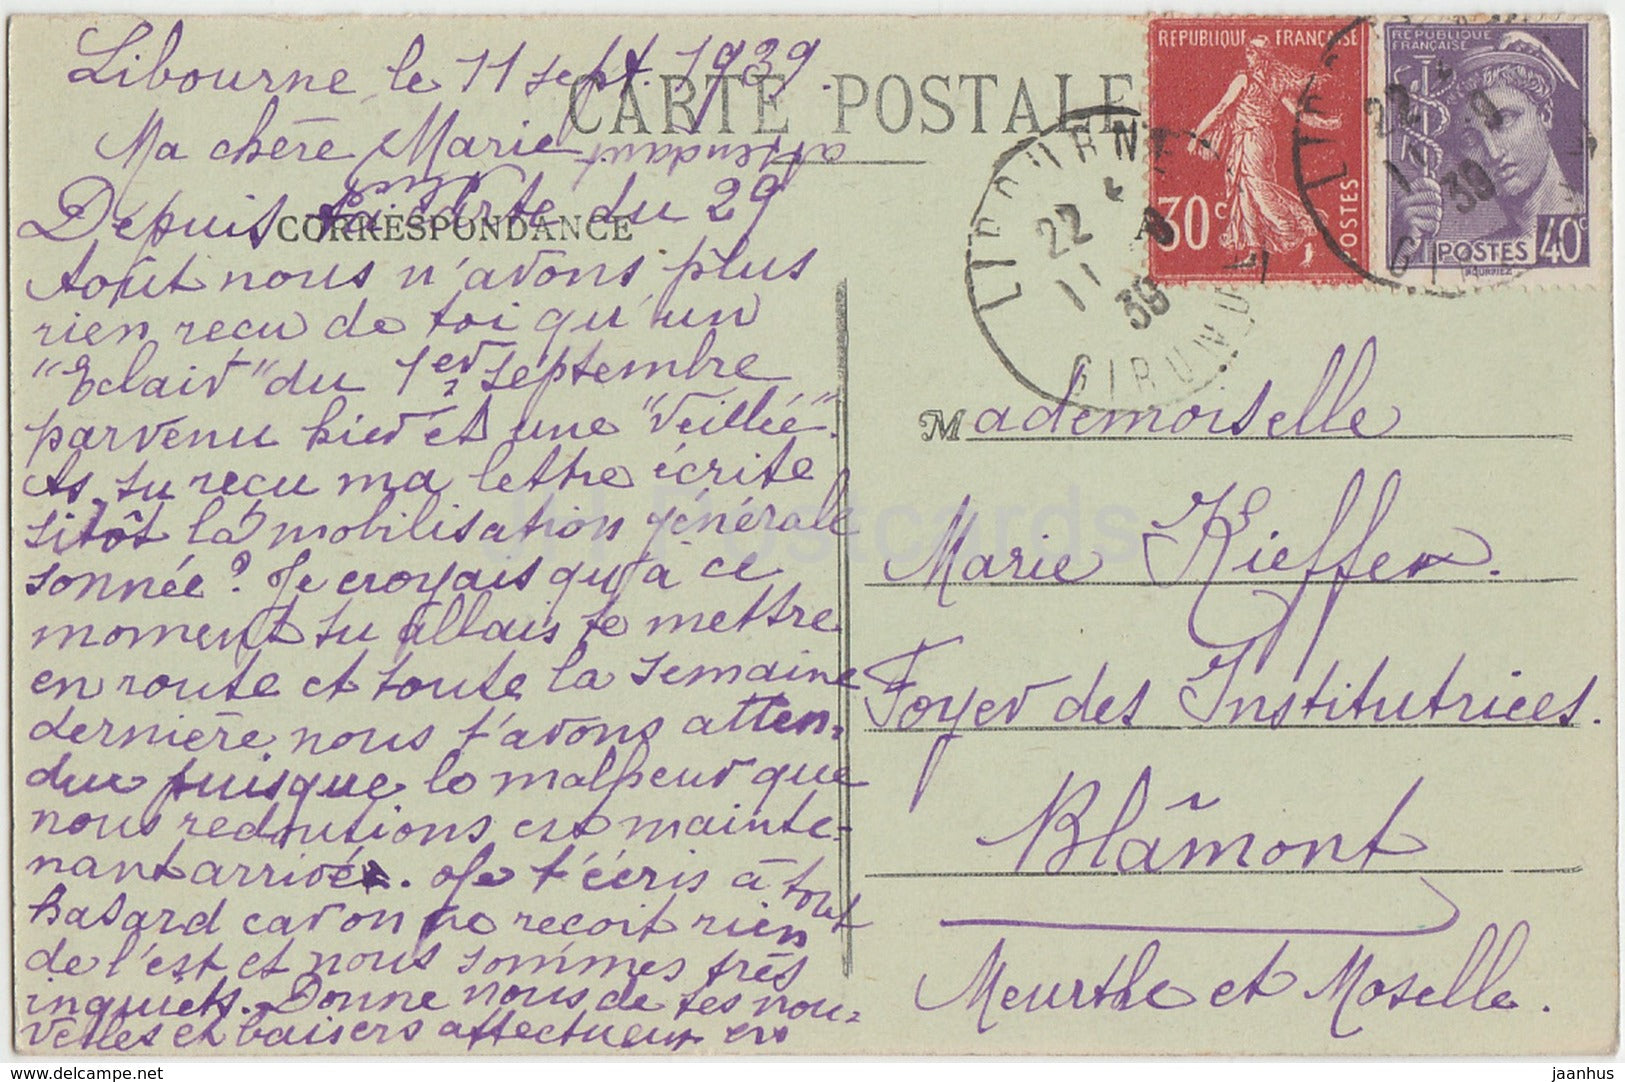 Libourne le 11 sept. 1939.
CARTE POSTALE
Ma chère Marie
attendant
Depuis ta carte du 29
CORRESPONDANCE
Août nous n'avons plus
rien reçu de toi qu'un
"Eclair" du 1er septembre
parvenu hier et une "Veillée".
As-tu reçu ma lettre écrite
sitôt la mobilisation générale
sonnée? Je croyais qu'à ce
moment tu allais te mettre
en route et toute la semaine
dernière nous t'avons atten-
du puisque le malheur que
nous redoutions est mainte-
nant arrivé. Je t'écris à tout
hasard car on ne reçoit rien
de l'est et nous sommes très
inquiets. Donne nous de tes nou-
velles et baisers affectueux en
REPUBLIQUE FRANÇAISE
30c
POSTES
REPUBLIQUE
FRANÇAISE
POSTES 40c
LIBOURNE
22
11 9
39
GIRONDE
22
11 9
39
Mademoiselle
Marie Kieffer.
Foyer des Institutrices.
Blâmont
Meurthe et Moselle.
JH Postcards
hippostcard.com
jaanhus